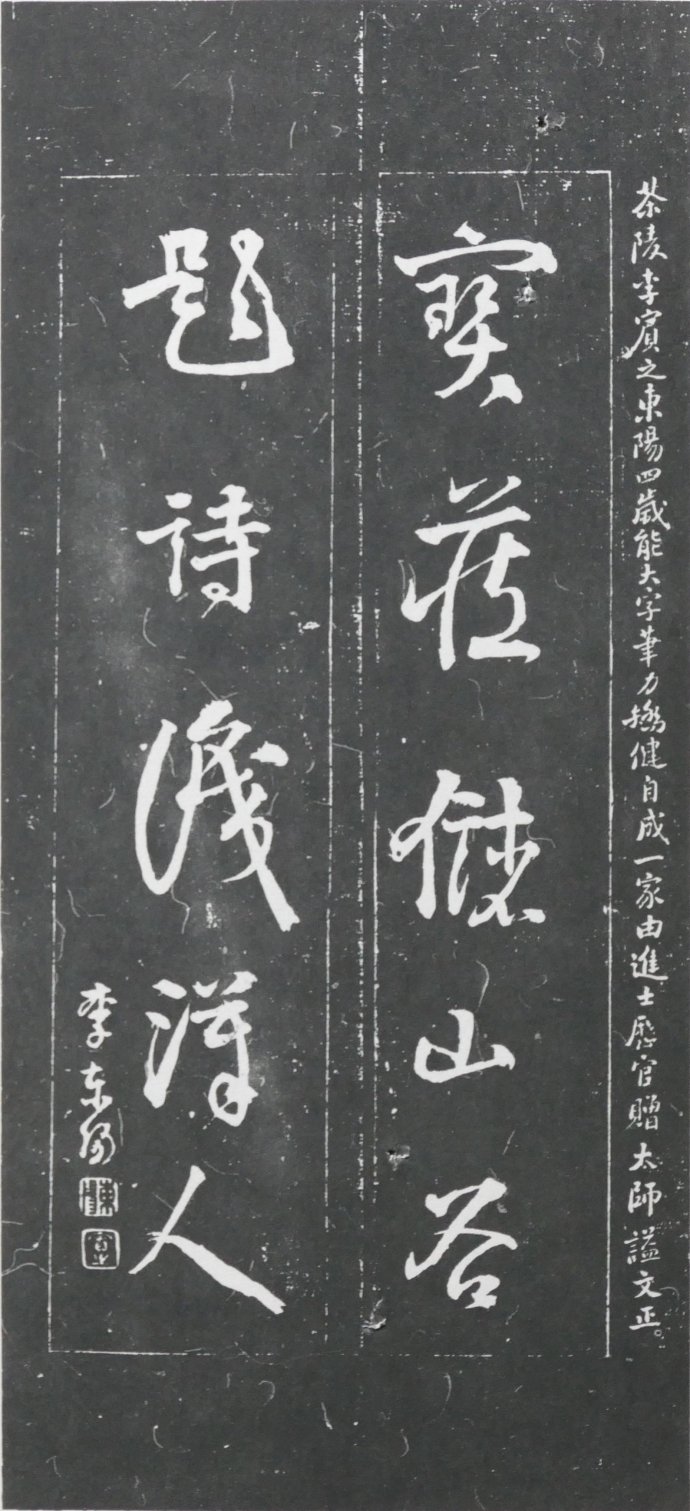 茶陵李賓之東陽四歲能大字筆力矯健自成一家由進士歷官贈太師謚文正。
寶藏山谷
題詩人
李东陽